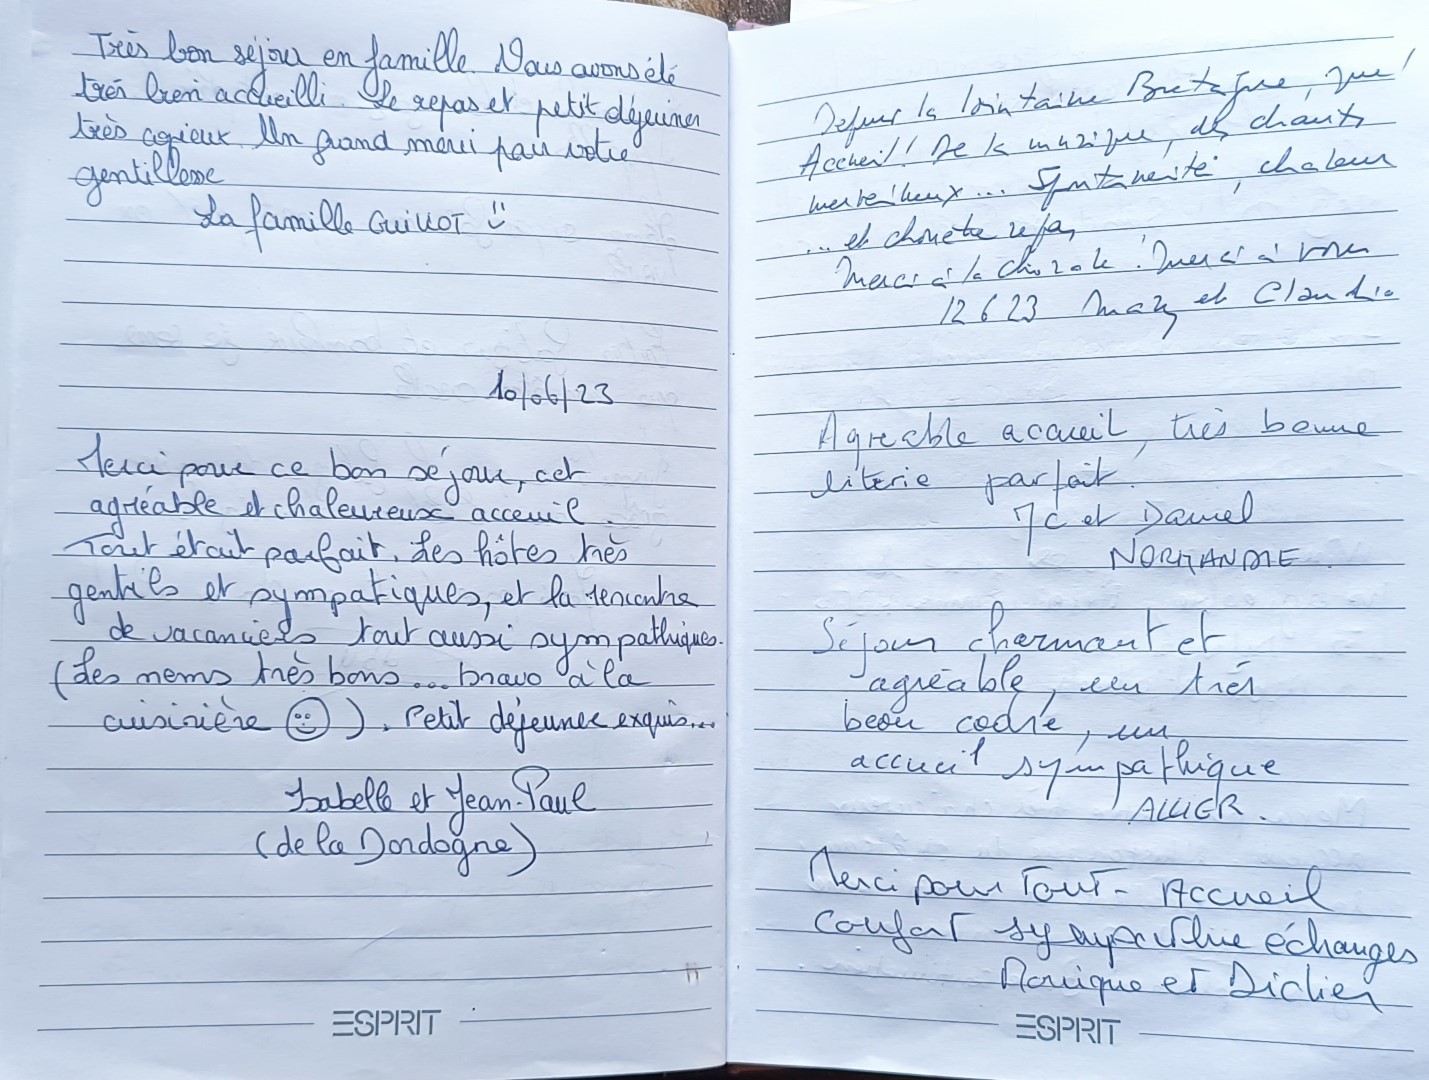 Très bon séjour en famille. Nous avons été
très bien accueilli. Le repas et petit déjeuner
très copieux. Un grand merci pour votre
gentillesse
La famille GUILLOT
10/06/23
Merci pour ce bon séjour, cet
agréable et chaleureux acceuil.
Tout était parfait. Les hôtes très
gentils et sympatiques, et la rencontre
de vacanciers tout aussi sympathiques.
(Les nems très bons... bravo à la
cuisinière ☺). Petit déjeuner exquis...
Isabelle et Jean-Paul
(de la Dordogne)
ESPRIT
Depuis la lointaine Bretagne, quel
Accueil! De la musique, des chants
merveilleux... Spontanéité, chaleur
... et chouette repas
Merci à la chorale! Merci à vous
12 6 23 et
Agréable accueil, très bonne
literie parfait.
MC et Daniel
NORMANDIE.
Séjour charmant et
agréable, un très
beau cadre, un
accueil sympathique
ALLIER.
Merci pour Tout - Accueil
Confort sympathie échanges
Monique et Didier
ESPRIT